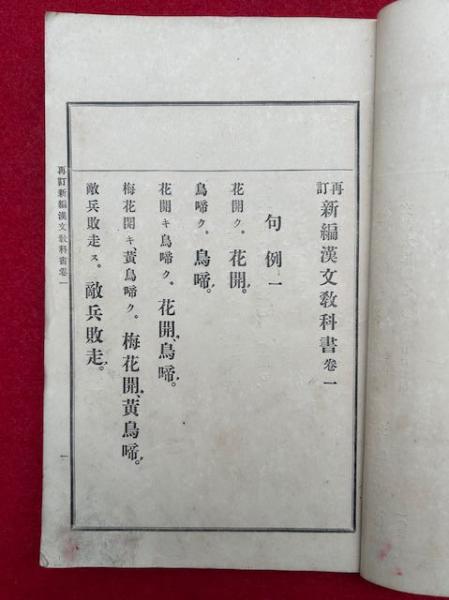 再訂新編漢文敎科書卷一
句例一
花開ク。花開。
鳥啼ク。鳥啼。
花開キ鳥啼ク。花開、鳥啼。
梅花開キ、黃鳥啼ク。梅花開、黃鳥啼。
敵兵敗走ス。敵兵敗走。
再訂新編漢文敎科書卷一
一